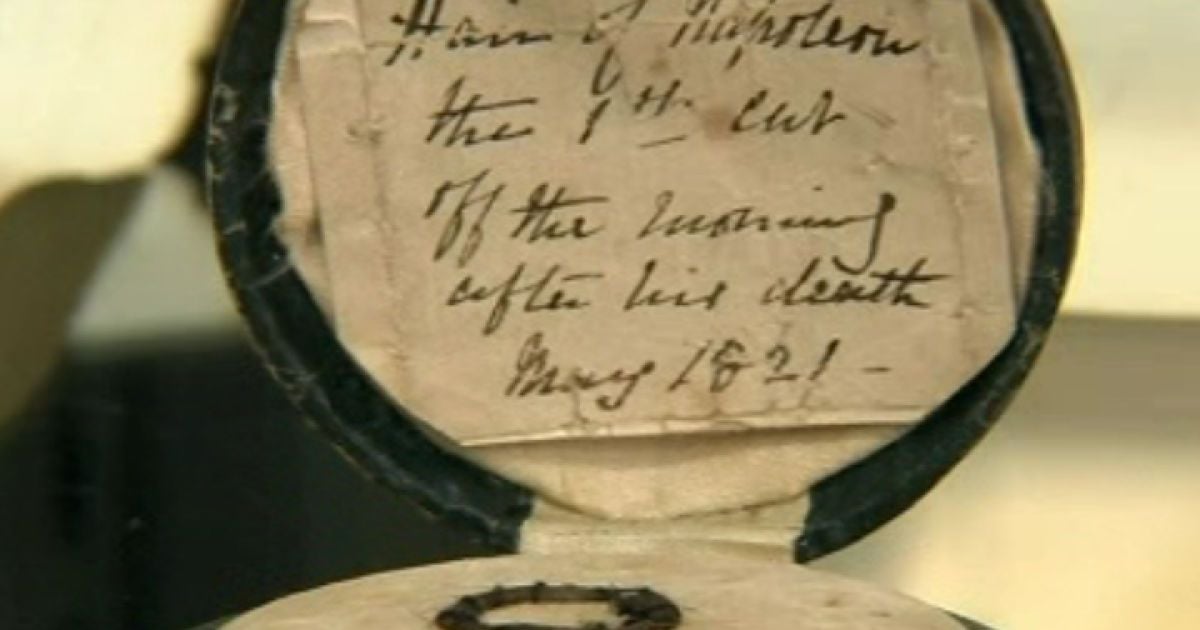 Hair of Napoleon
the 1st cut
off the morning
after his death
May 1821 -